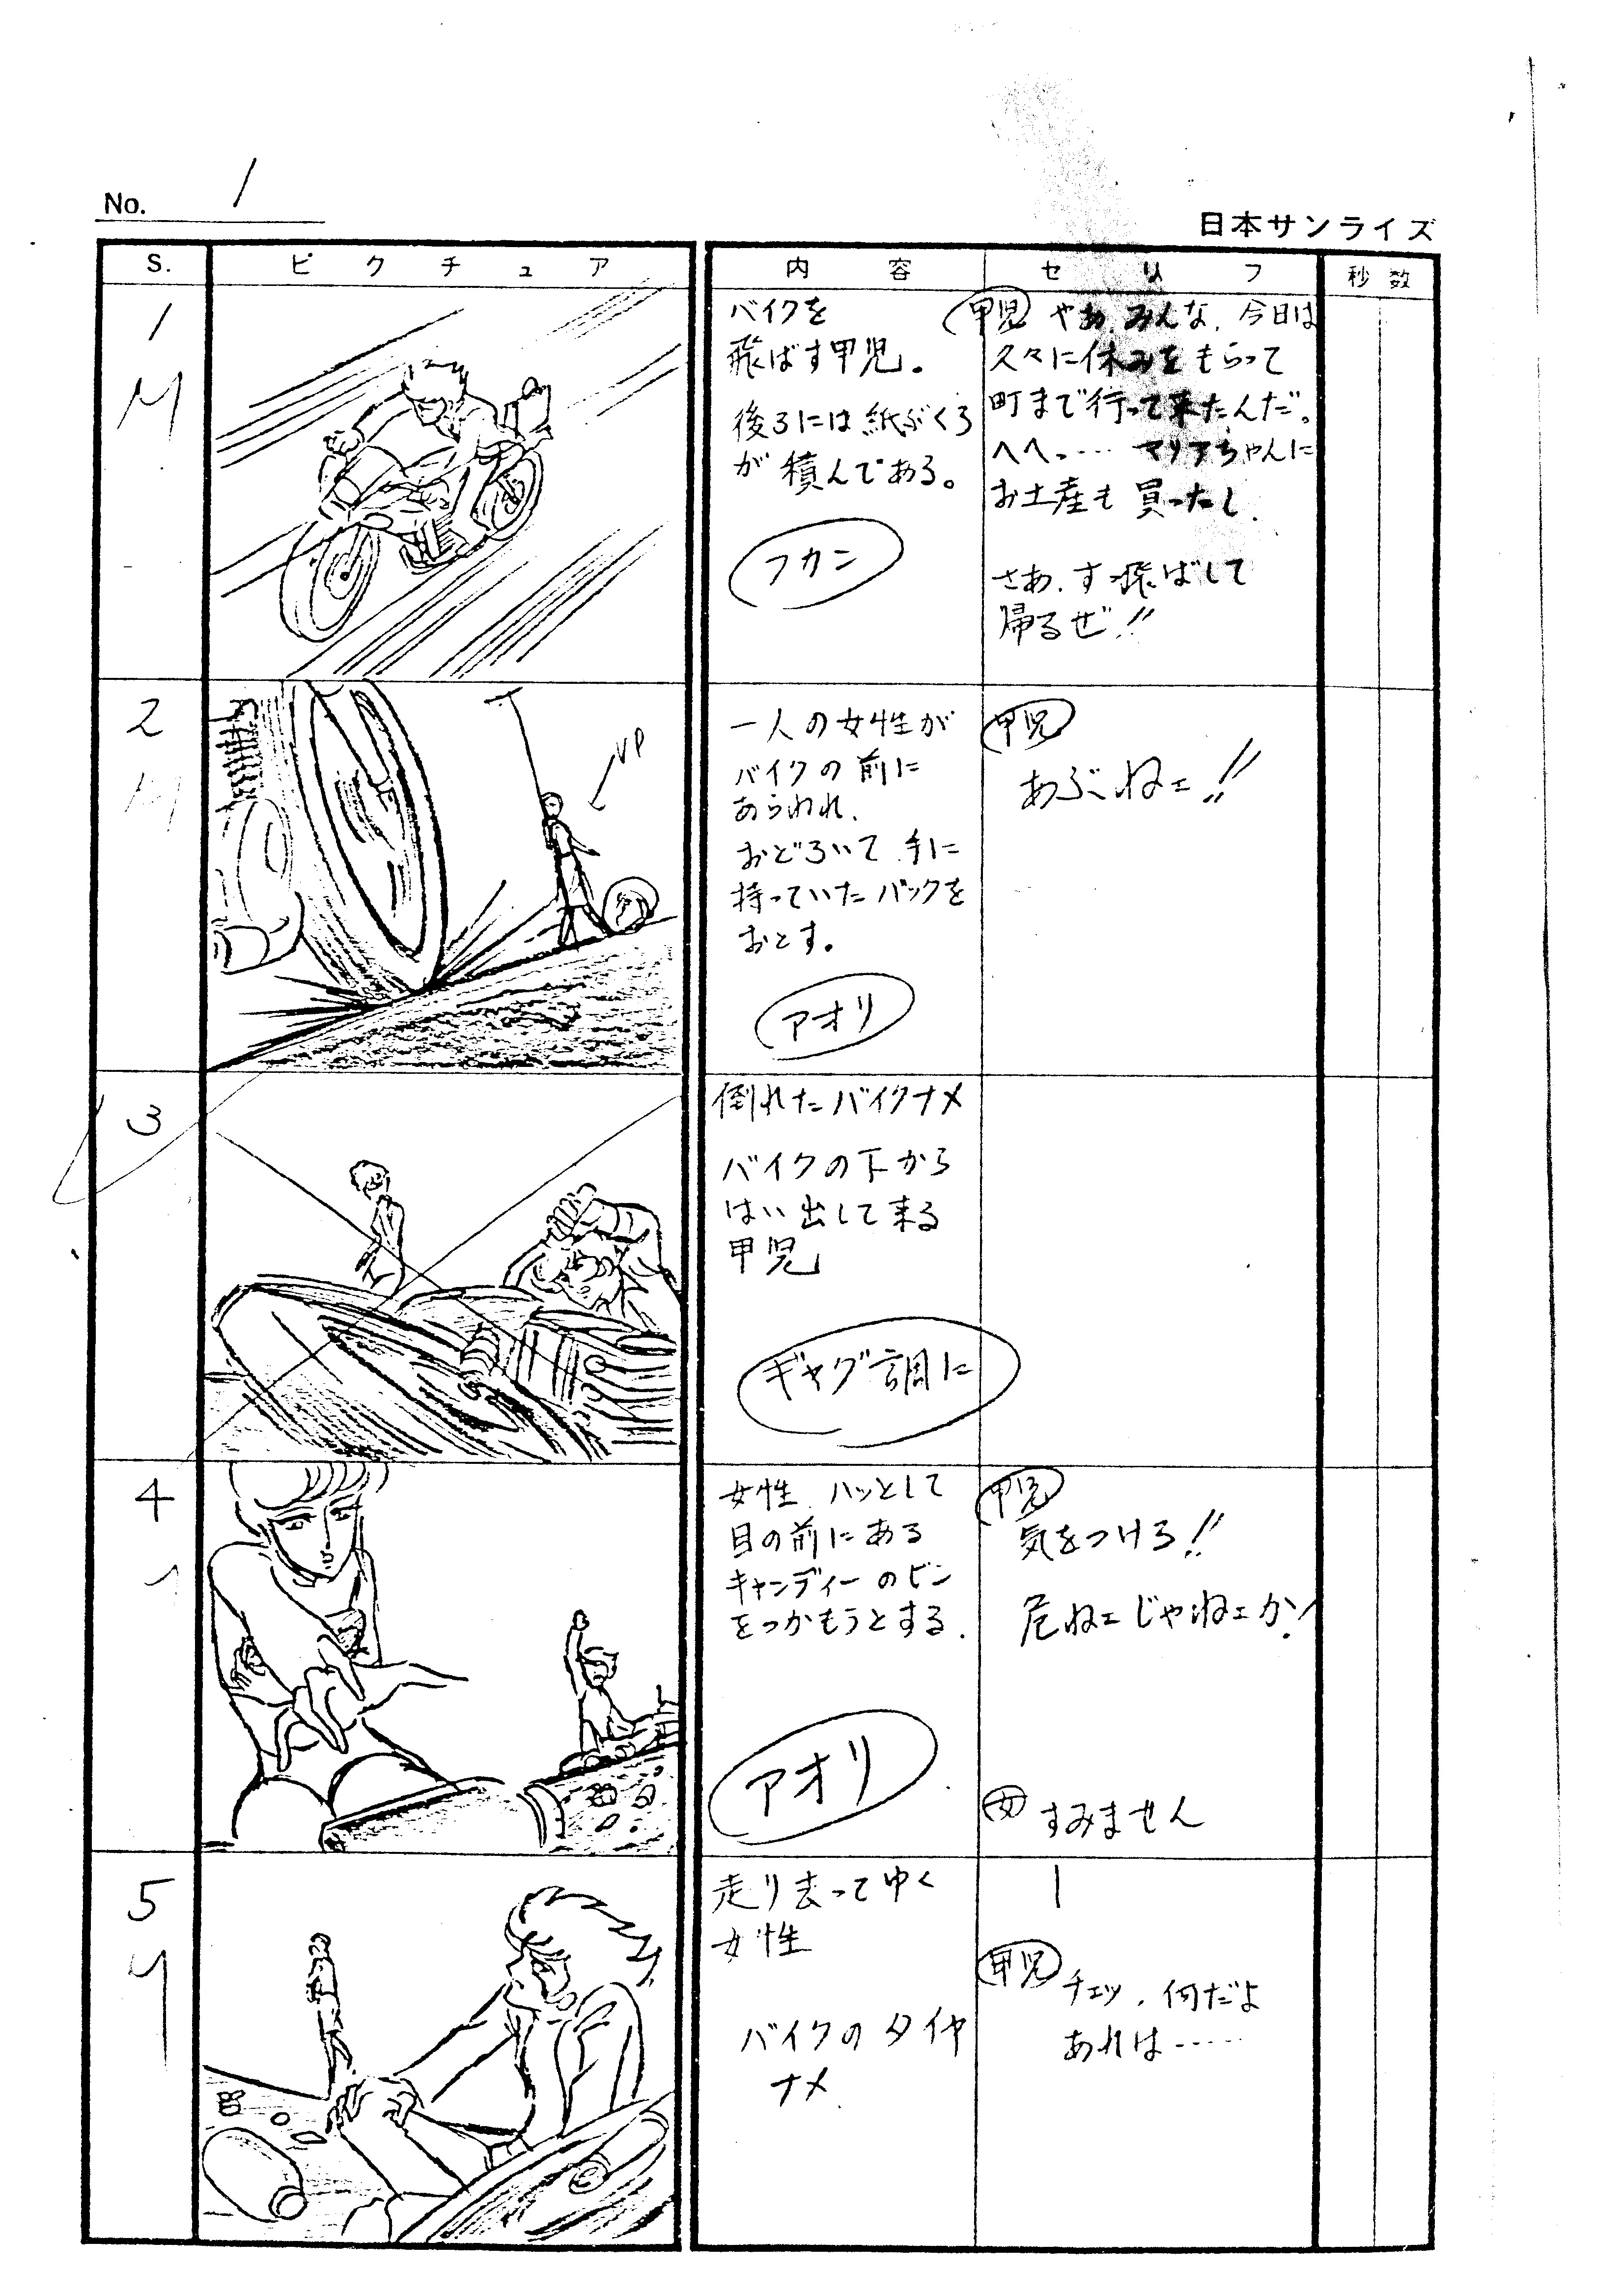 No. 1
日本サンライズ
S. ピクチュア 内容 セリフ 秒数
1
バイクを
飛ばす甲児。
後ろには紙ぶくろ
が積んである。
フカン
甲児 やあ、みんな、今日は
久々に休みをもらって
町まで行って来たんだ。
へへっ…… マリアちゃんに
お土産も買ったし、
さあ、す飛ばして
帰るぜ!!
2
VP
一人の女性が
バイクの前に
あらわれ、
おどろいて手に
持っていたバックを
おとす。
アオリ
甲児
あぶねェ!!
3
倒れたバイクナメ
バイクの下から
はい出して来る
甲児
ギャグ調に
4
女性 ハッとして
目の前にある
キャンディーのビン
をつかもうとする.
アオリ
甲児
気をつけろ!!
危ねェじゃねェか!
女 すみません
5
走り去ってゆく
女性
バイクのタイヤ
ナメ
甲児 チェッ、何だよ
あれは……